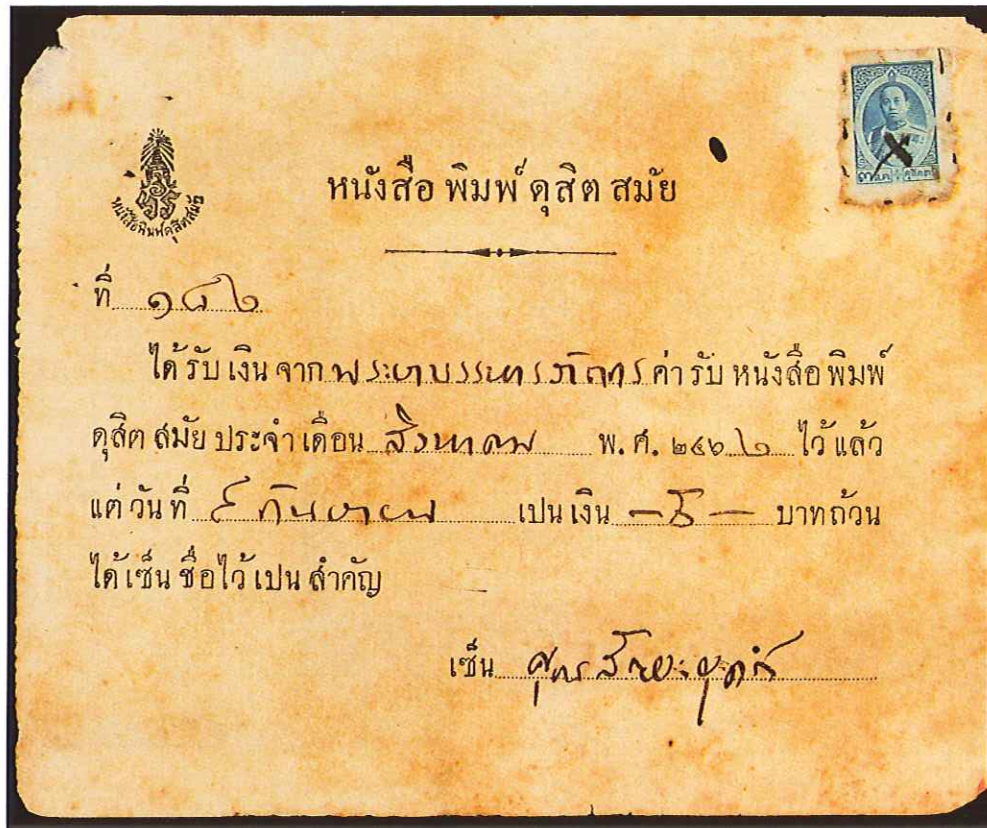 หนังสือพิมพ์ดุสิตสมัย
หนังสือ พิมพ์ ดุสิต สมัย
ที่ ๑๘๒
ได้รับเงินจาก พระยาบรรหารภักดี ค่ารับ หนังสือพิมพ์
ดุสิต สมัย ประจำเดือน สิงหาคม พ.ศ. ๒๔๖๒ ไว้แล้ว
แต่วันที่ ๕ กันยายน เปนเงิน บาทถ้วน
ได้เซ็น ชื่อไว้เปน สำคัญ
เซ็น